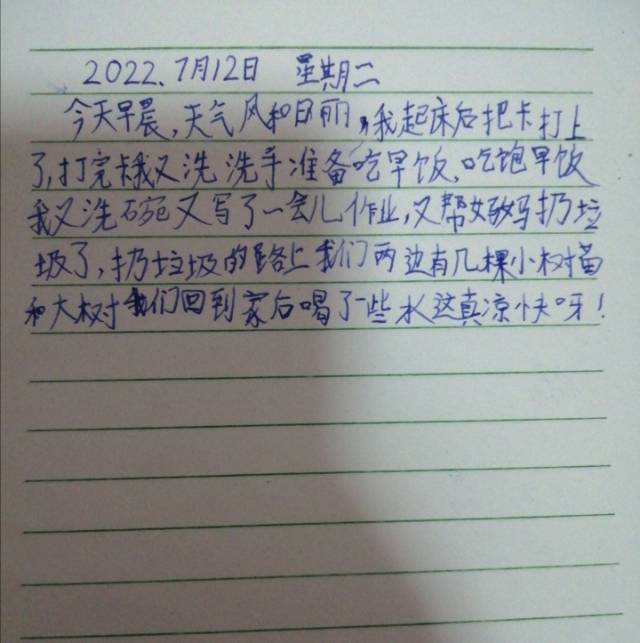 2022.7月12日 星期二
今天早晨,天气风和日丽,我起床后把卡打上
了,打完卡我又洗洗手准备吃早饭、吃饱早饭
我又洗碗又写了一会儿作业,又帮妈妈扔垃
圾了,扔垃圾的路上我们两边有几棵小树苗
和大树我们回到家后喝了一些水这真凉快呀!